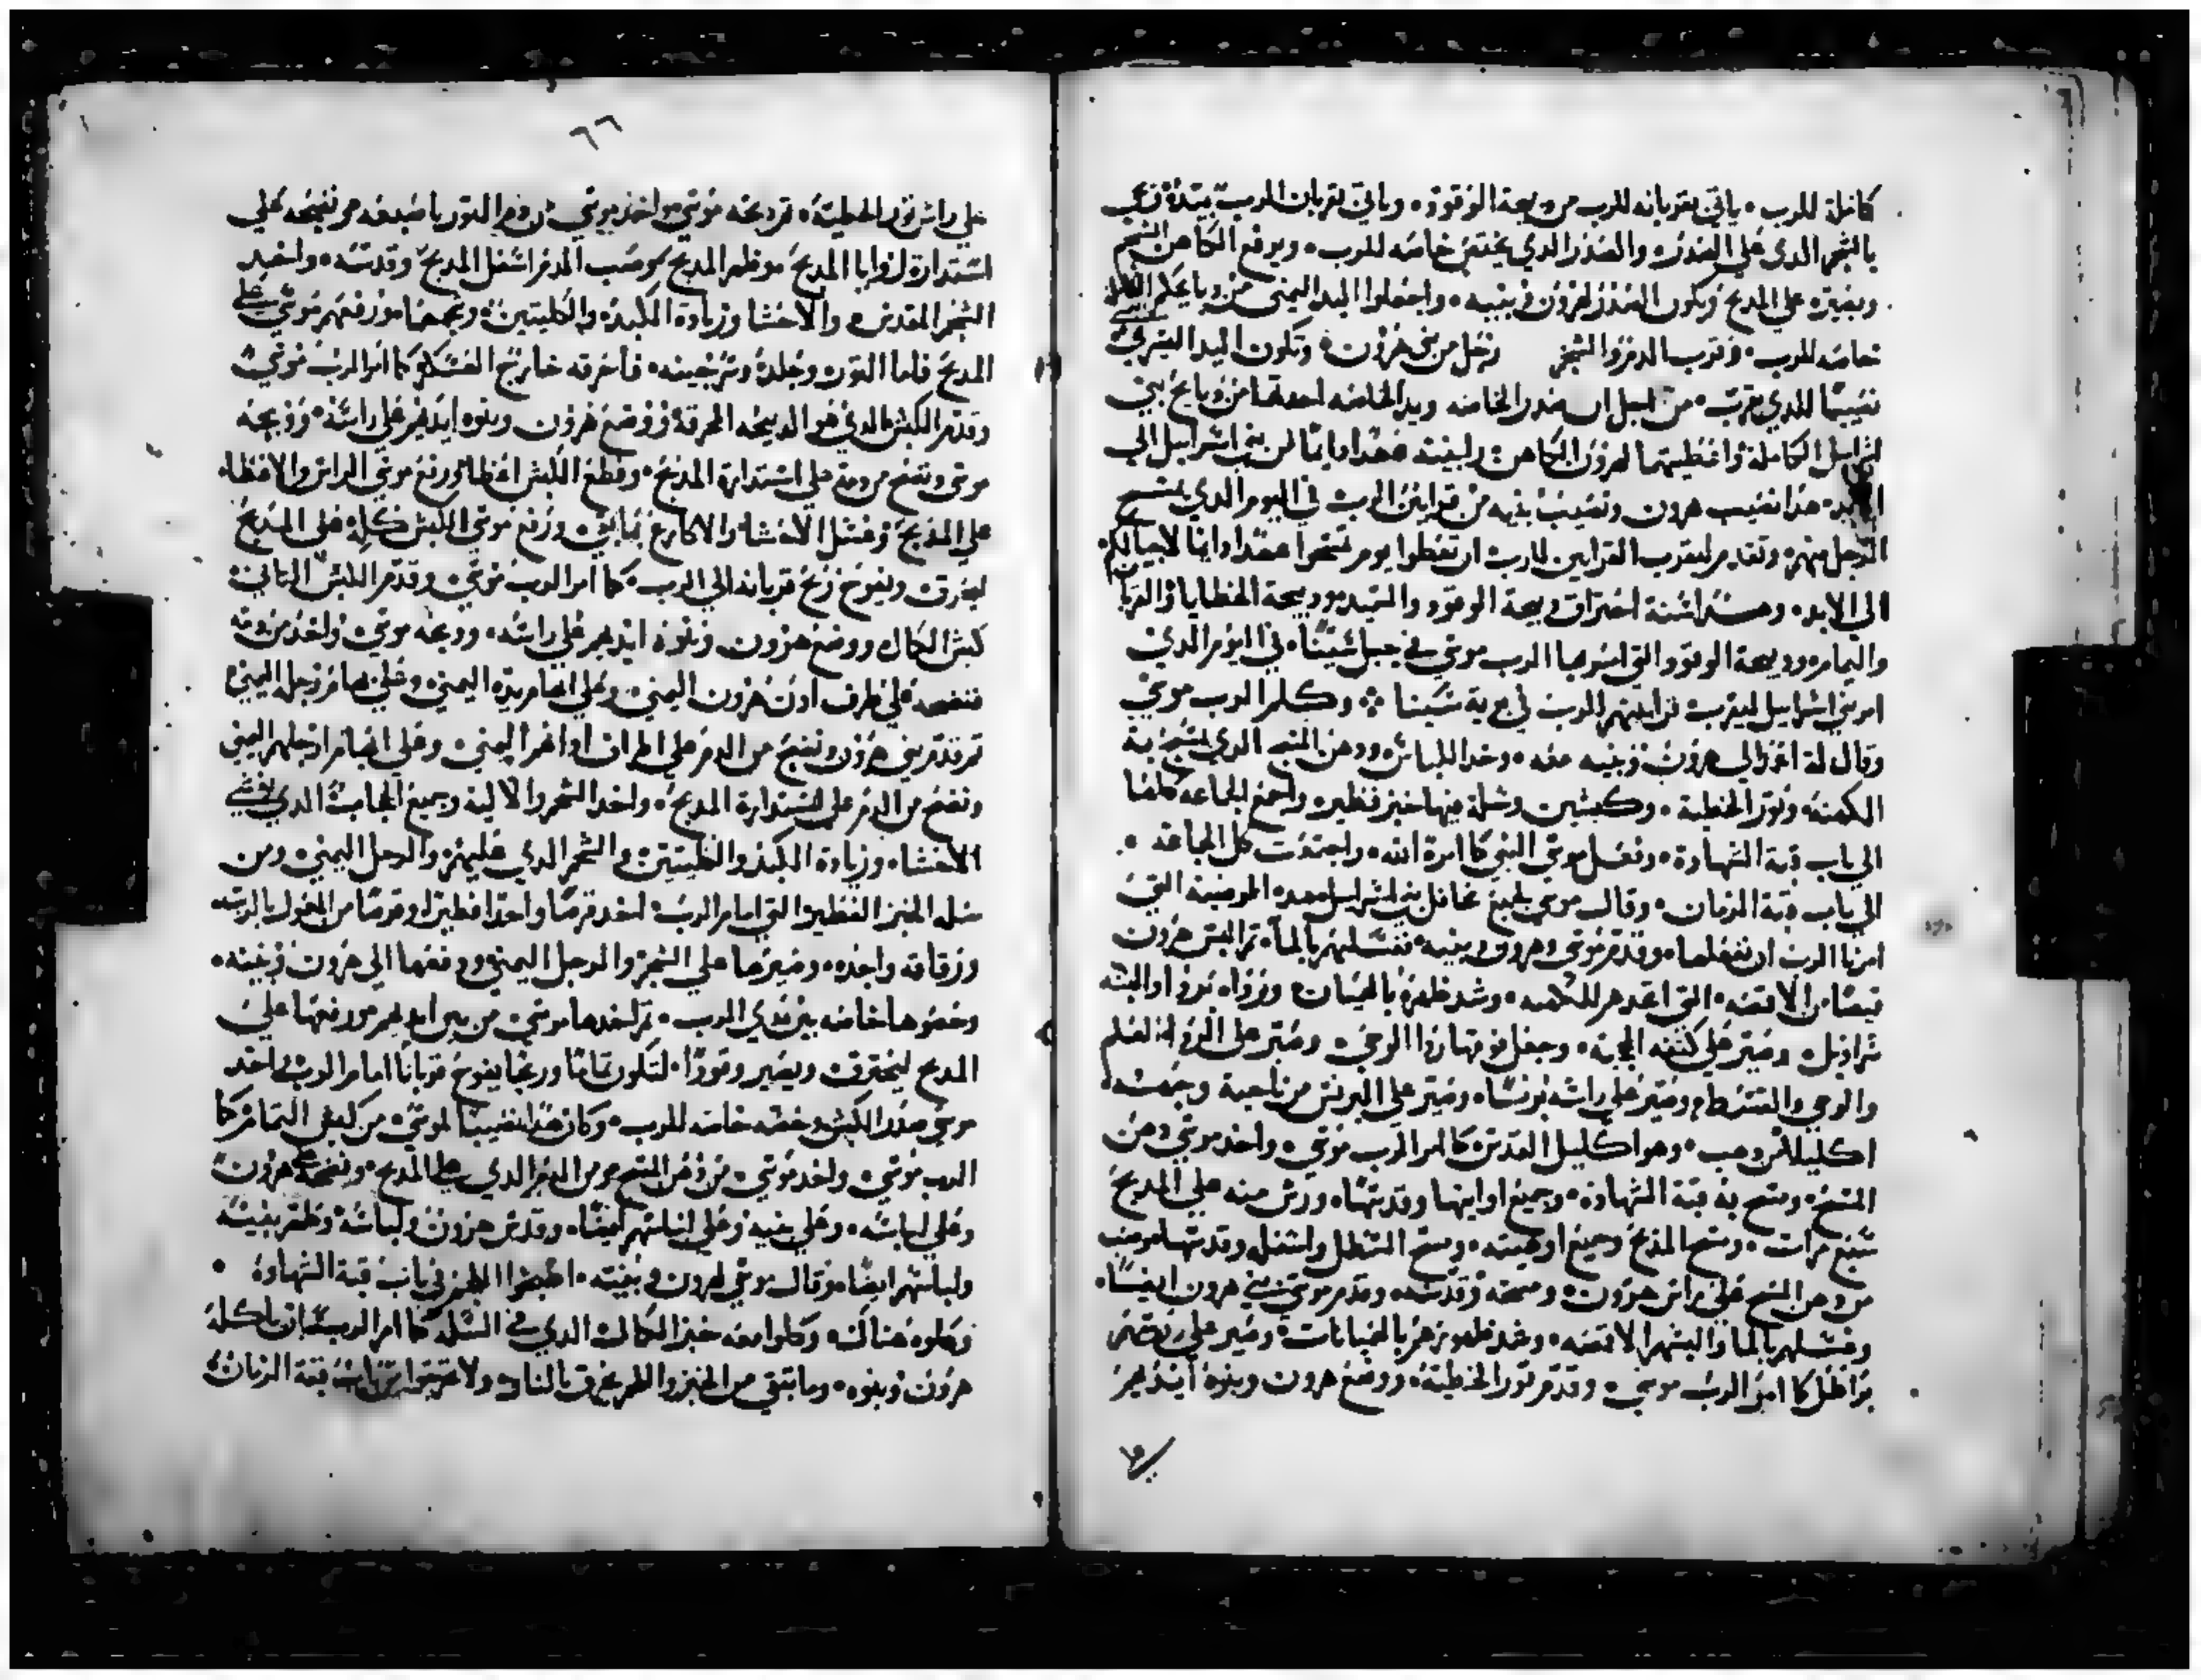 كاملة للرب • ياتي بقربانه للرب من دبيحة الوقود • وياتي بقربان الرب بيده
بالشحم الدي على الصدر والصدر الدي يختص خاصه للرب • ويرفع الكاهن الشحم
ويصيره على المدبح ويكون الصدر لهرون وبنيه • واجعلوا اليد اليمنى من دبايحكم
خاصه للرب • وقرب الدم والشحم رجل من بني هرون وتكون اليد اليمنى
نصيبا للدي يقرب • من اجل ان صدر الخاصه ويد الخاصه اخدتها من دبايح بني
اسراييل الكاملة واعطيتهما لهرون الكاهن ولبنيه عهدا دايما من بني اسراييل الي
هدا نصيب هرون ونصيب بنيه من قرابين الرب في اليوم الدي يمسح
الرجل منهم • وتقدم ليقرب القرابين للرب ان تعطوا يوم تمسحوا عهدا دايما لاجيالكم
الي الابد • سنة احتراق دبيحة الوقود والسيد ودبيحة الخطايا
والتمام • ودبيحة الوقود التي الرب موسي في جبل سينا • في اليوم الدي
امر بني اسراييل ليقرب قرابينهم للرب في برية سينا ❖ وكلم الرب موسي
وقال له هرون وبنيه معه • وخد اللباس ودهن المسح الدي يمسح به
الكهنة • وتور الخطية • وكبشين وسلة فيها خبز فطير • واجمع الجماعه كلها
الي باب قبة الشهادة • وفعل موسي النبي كما امره الله • واجتمعت كل الجماعه •
الي باب قبة الزمان • وقال موسي لجميع محافل بني اسراييل الوصية التي
امرنا الرب ان نفعلها • وقدم موسي وهرون وبنيه • فغسلهم بالما • تم البس هرون
قميصا من الاقمصه • التي للكهنه • وشد ظهره بالهميان • ورداه بردا والبسه
سراويل • وصير على كتفه الجبة • وجعل فوقها ردا الوحي • وصير على الردا العلم
والوحي والقسط • وصير على راسه برنسا • وصير على البرنس من ناحية وجهه
اكليلا من دهب • وهو اكليل القدس كما امر الرب موسي • واخد موسي دهن
المسح • ومسح به قبة الشهادة • وجميع اوانيها وقدسها • ورش منه علي المدبح
سبع مرات • ومسح المدبح وجميع اوعيته • ومسح السطل واسفله وقدسها • وصب
من دهن المسح على راس هرون • ومسحه وقدسه • وقدم موسي بني هرون ايضا •
وغسلهم بالما والبسهم الاقمصه • وشد ظهورهم بالهميانات • وصير على روسهم
براطل كما امر الرب موسي • وقدم تور الخطية • ووضع هرون وبنوه ايديهم
٦٦
علي راس تور الخطية • تم دبحه موسي • واخد موسي من دم التور باصبعه ونضحه علي
استدارة زوايا المدبح • وطهر المدبح • وصب الدم اسفل المدبح وقدسه • واخد
الشحم المقدس والاحشا وزيادة الكبد والكليتين • وشحمهما ورفعهم موسي علي
المدبح فاما التور وجلده وسرجينه • فاحرقه خارج العسكر كما امر الرب موسي
وقدم الكبش الدي هو الدبيحه المحرقة ووضع هرون وبنوه ايديهم علي راسه • ودبحه
موسي ونضح من دمه علي استدارة المدبح • وقطع الكبش اعظاه ورفع موسي الراس والاعظا
علي المدبح • وغسل الاحشا والاكارع بما • ورفع موسي الكبش كله على المدبح
ليحرق ويفوح ريح قربانه الي الرب • كما امر الرب موسي • وقدم الكبش التاني
كبش الكمال ووضع هرون وبنوه ايديهم علي راسه • ودبحه موسي • واخد من دمه
فنضحه علي طرف ادن هرون اليمني وعلي ابهام يده اليمني وعلي ابهام رجله اليمني
تم قدم بني هرون ونضح من الدم علي اطراف ادانهم اليمني • وعلي ابهام ارجلهم اليمني
ونضح من الدم على استدارة المدبح • واخد الشحم والالية وجميع الحجاب الدي يغشي
الاحشا • وزيادة الكبد والكليتين والشحم الدي عليهم • والرجل اليمني • ومن
سله الخبز الفطير التي امام الرب • اخد قرصا واحدا فطيرا وقرصا من المعمول بالزيت
ورقاقه واحده • وصيرها علي الشحم والرجل اليمني ودفعها الي هرون وبنيه •
وخصوها خاصه بين يدي الرب • تم اخدها موسي من بين ايديهم ورفعها علي
المدبح ليحترق ويصير وقودا • لتكون تماما وريحا يفوح قربانا امام الرب واخد
موسي صدر الكبش وخصه خاصه للرب • وكان هدا نصيبا لموسي من كبش التمام كما
الرب موسي • واخد موسي من دهن المسح ومن الدم الدي علي المدبح • ونضحه علي هرون
وعلي لباسه • وعلي بنيه وعلي لباسهم ايضا • وقدس هرون ولباسه وطهر بنيه
ولباسهم ايضا • وقال موسي لهرون وبنيه • اطبخوا اللحم في باب قبة الشهادة •
وكلوه هناك • وكلوا معه خبز الكمال الدي في السله كما امر الرب ان ياكله
هرون وبنوه • وما بقي من الخبز واللحم يحرق بالنار • ولا تخرجوا من باب قبة الزمان